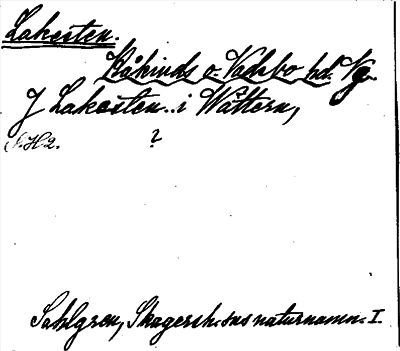 Lakesten.
Kåkinds o. Vadsbo hd. Vg.
J Lakesten i Wättern,
S.H2. ?
Sahlgren, Skagersh:sns naturnamn. I.